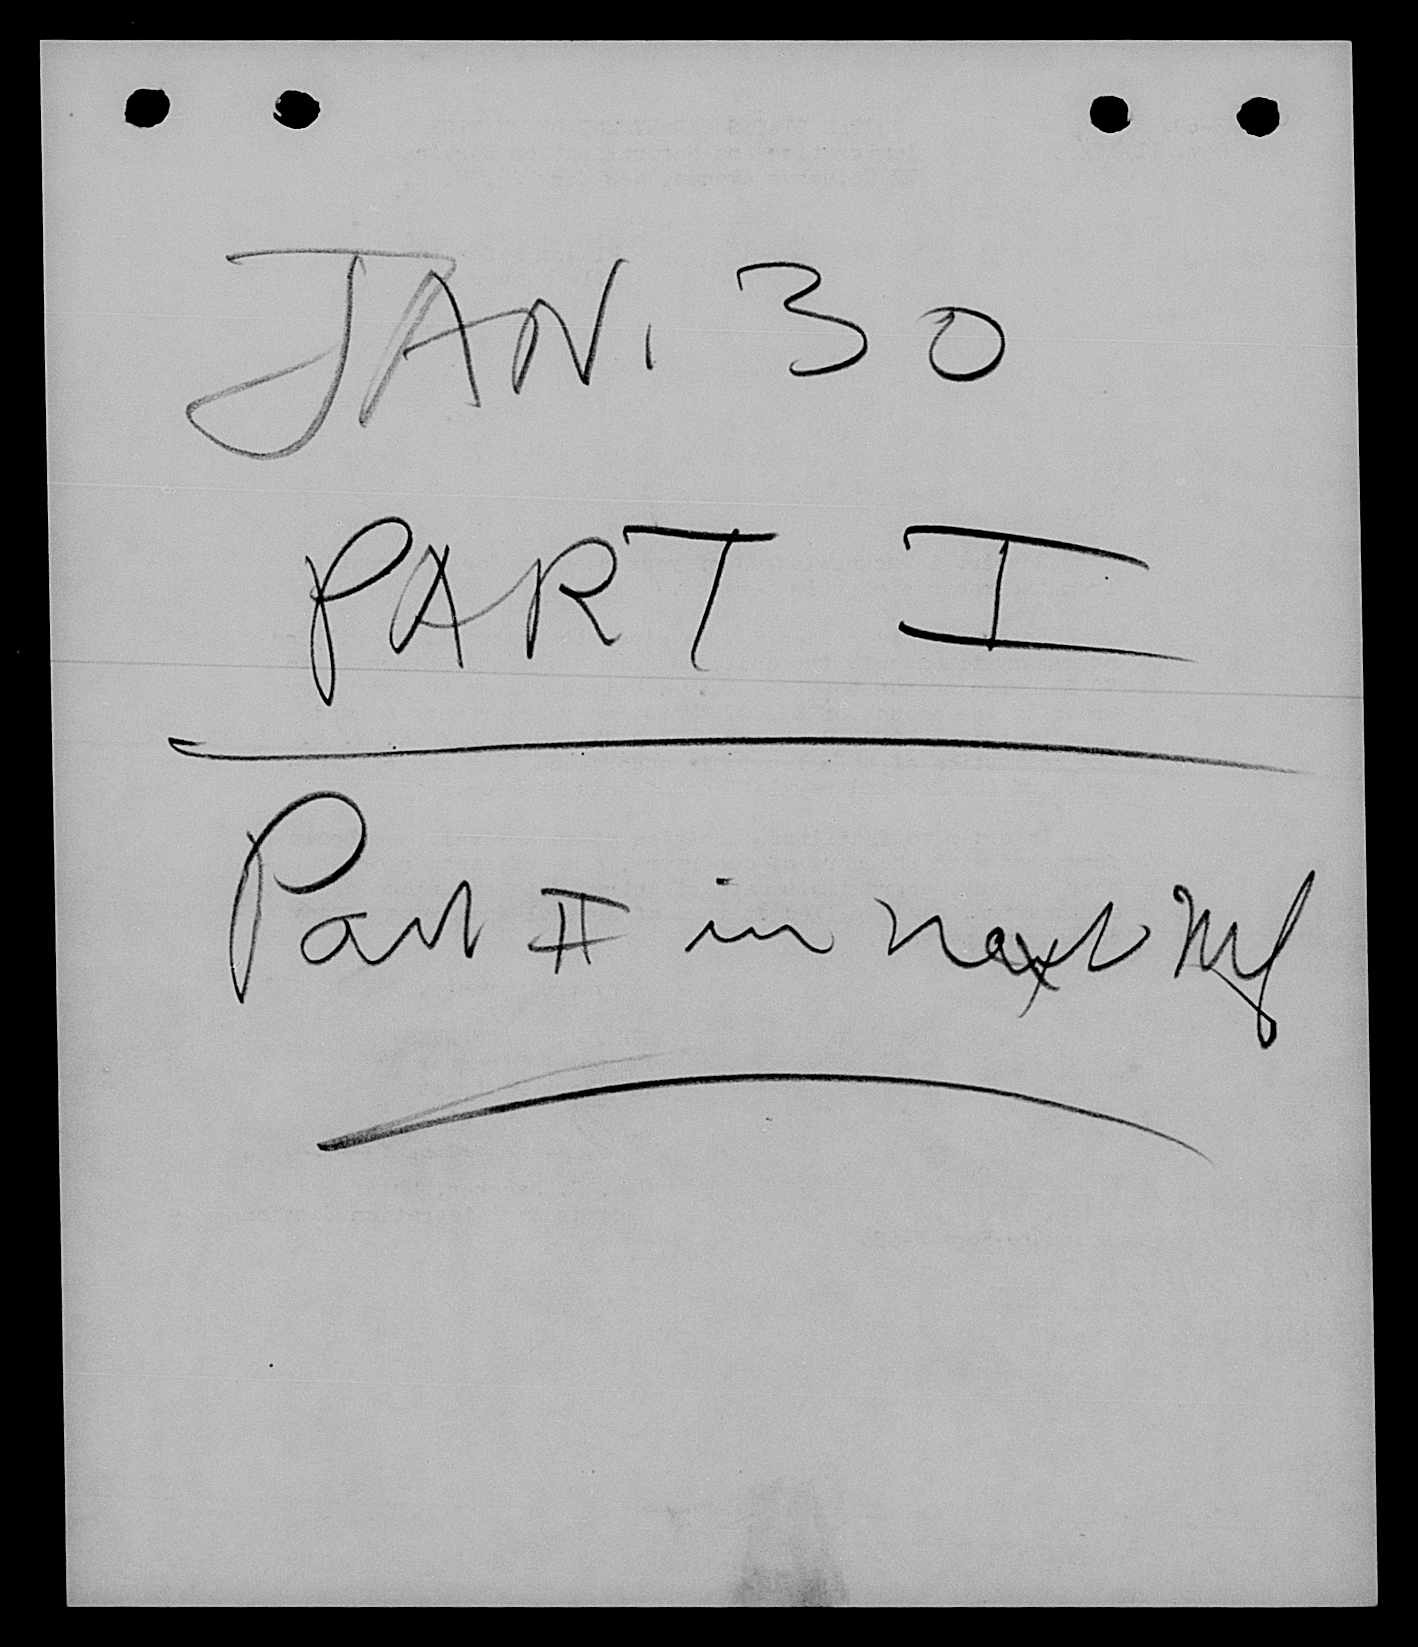 JAN. 30
PART I
Part II in next